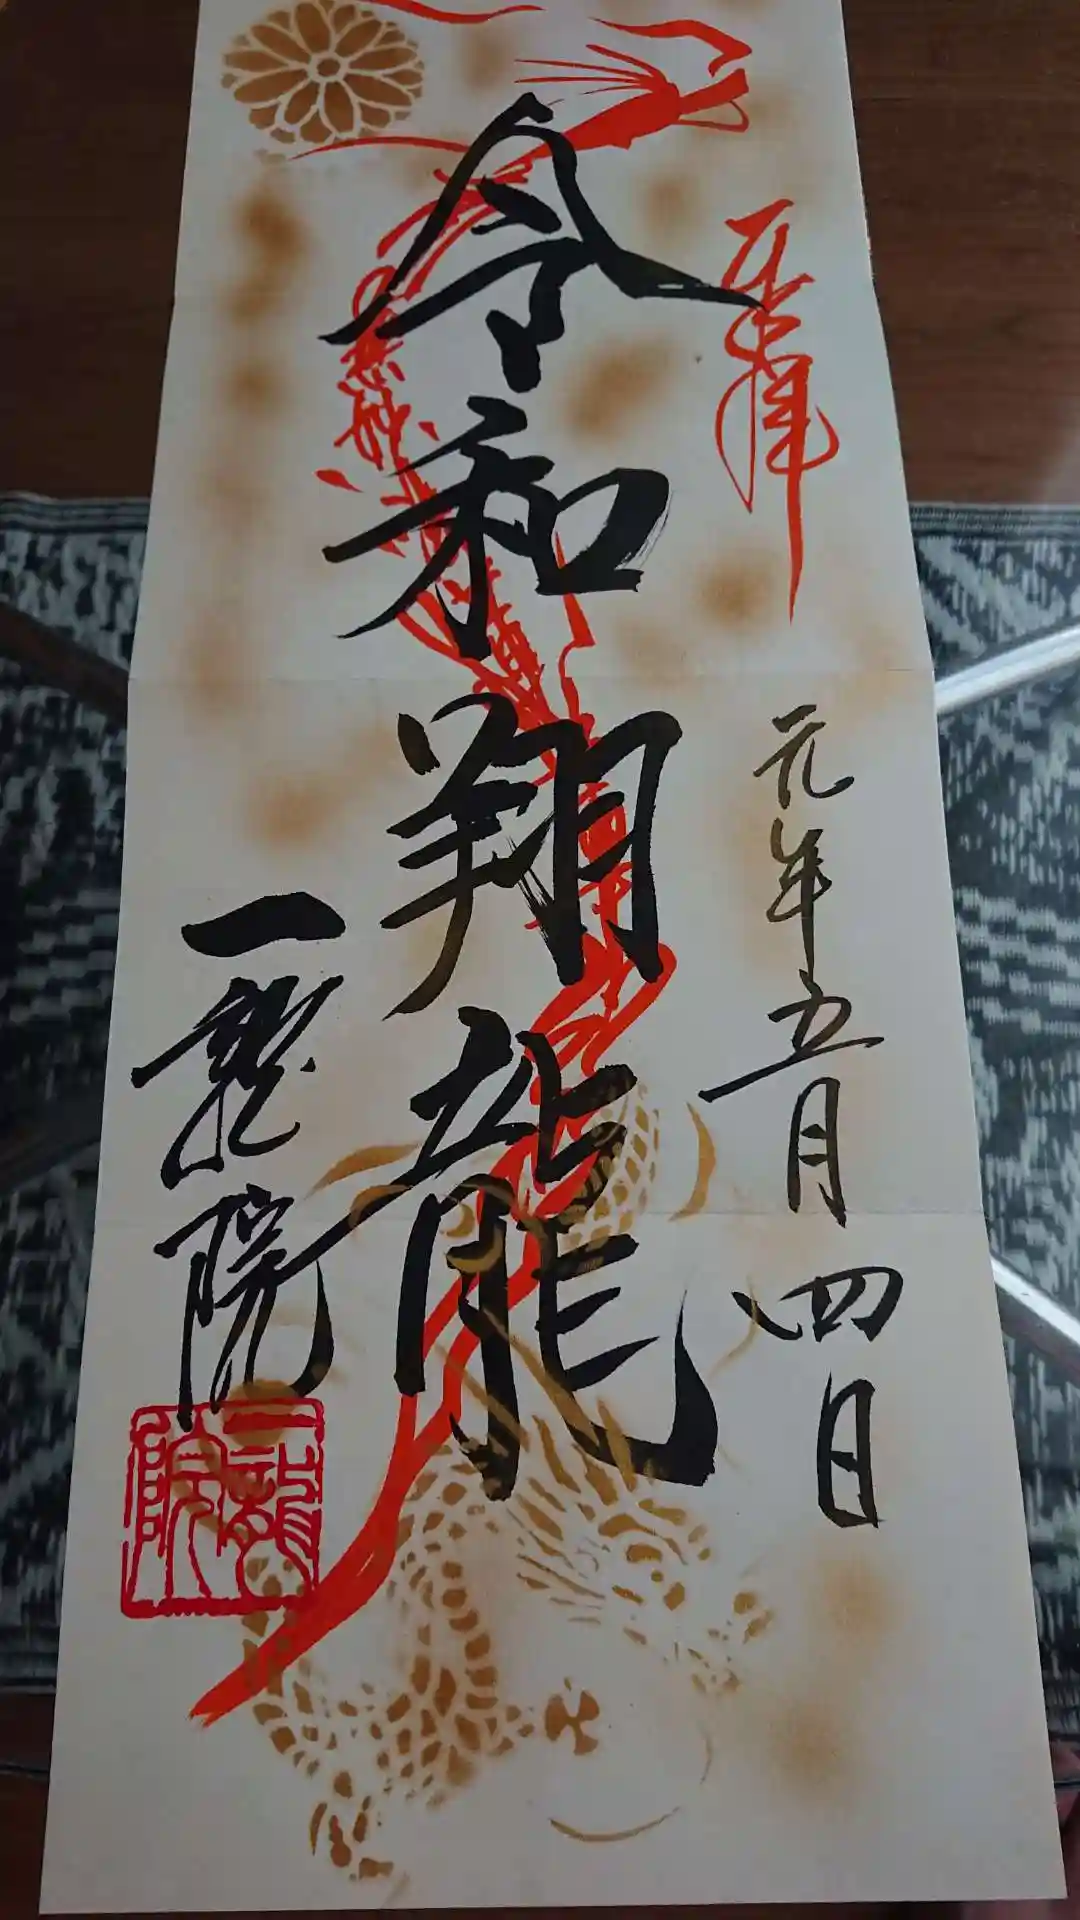 奉拝
元年五月四日
令和
翔龍
一龍院
一龍院